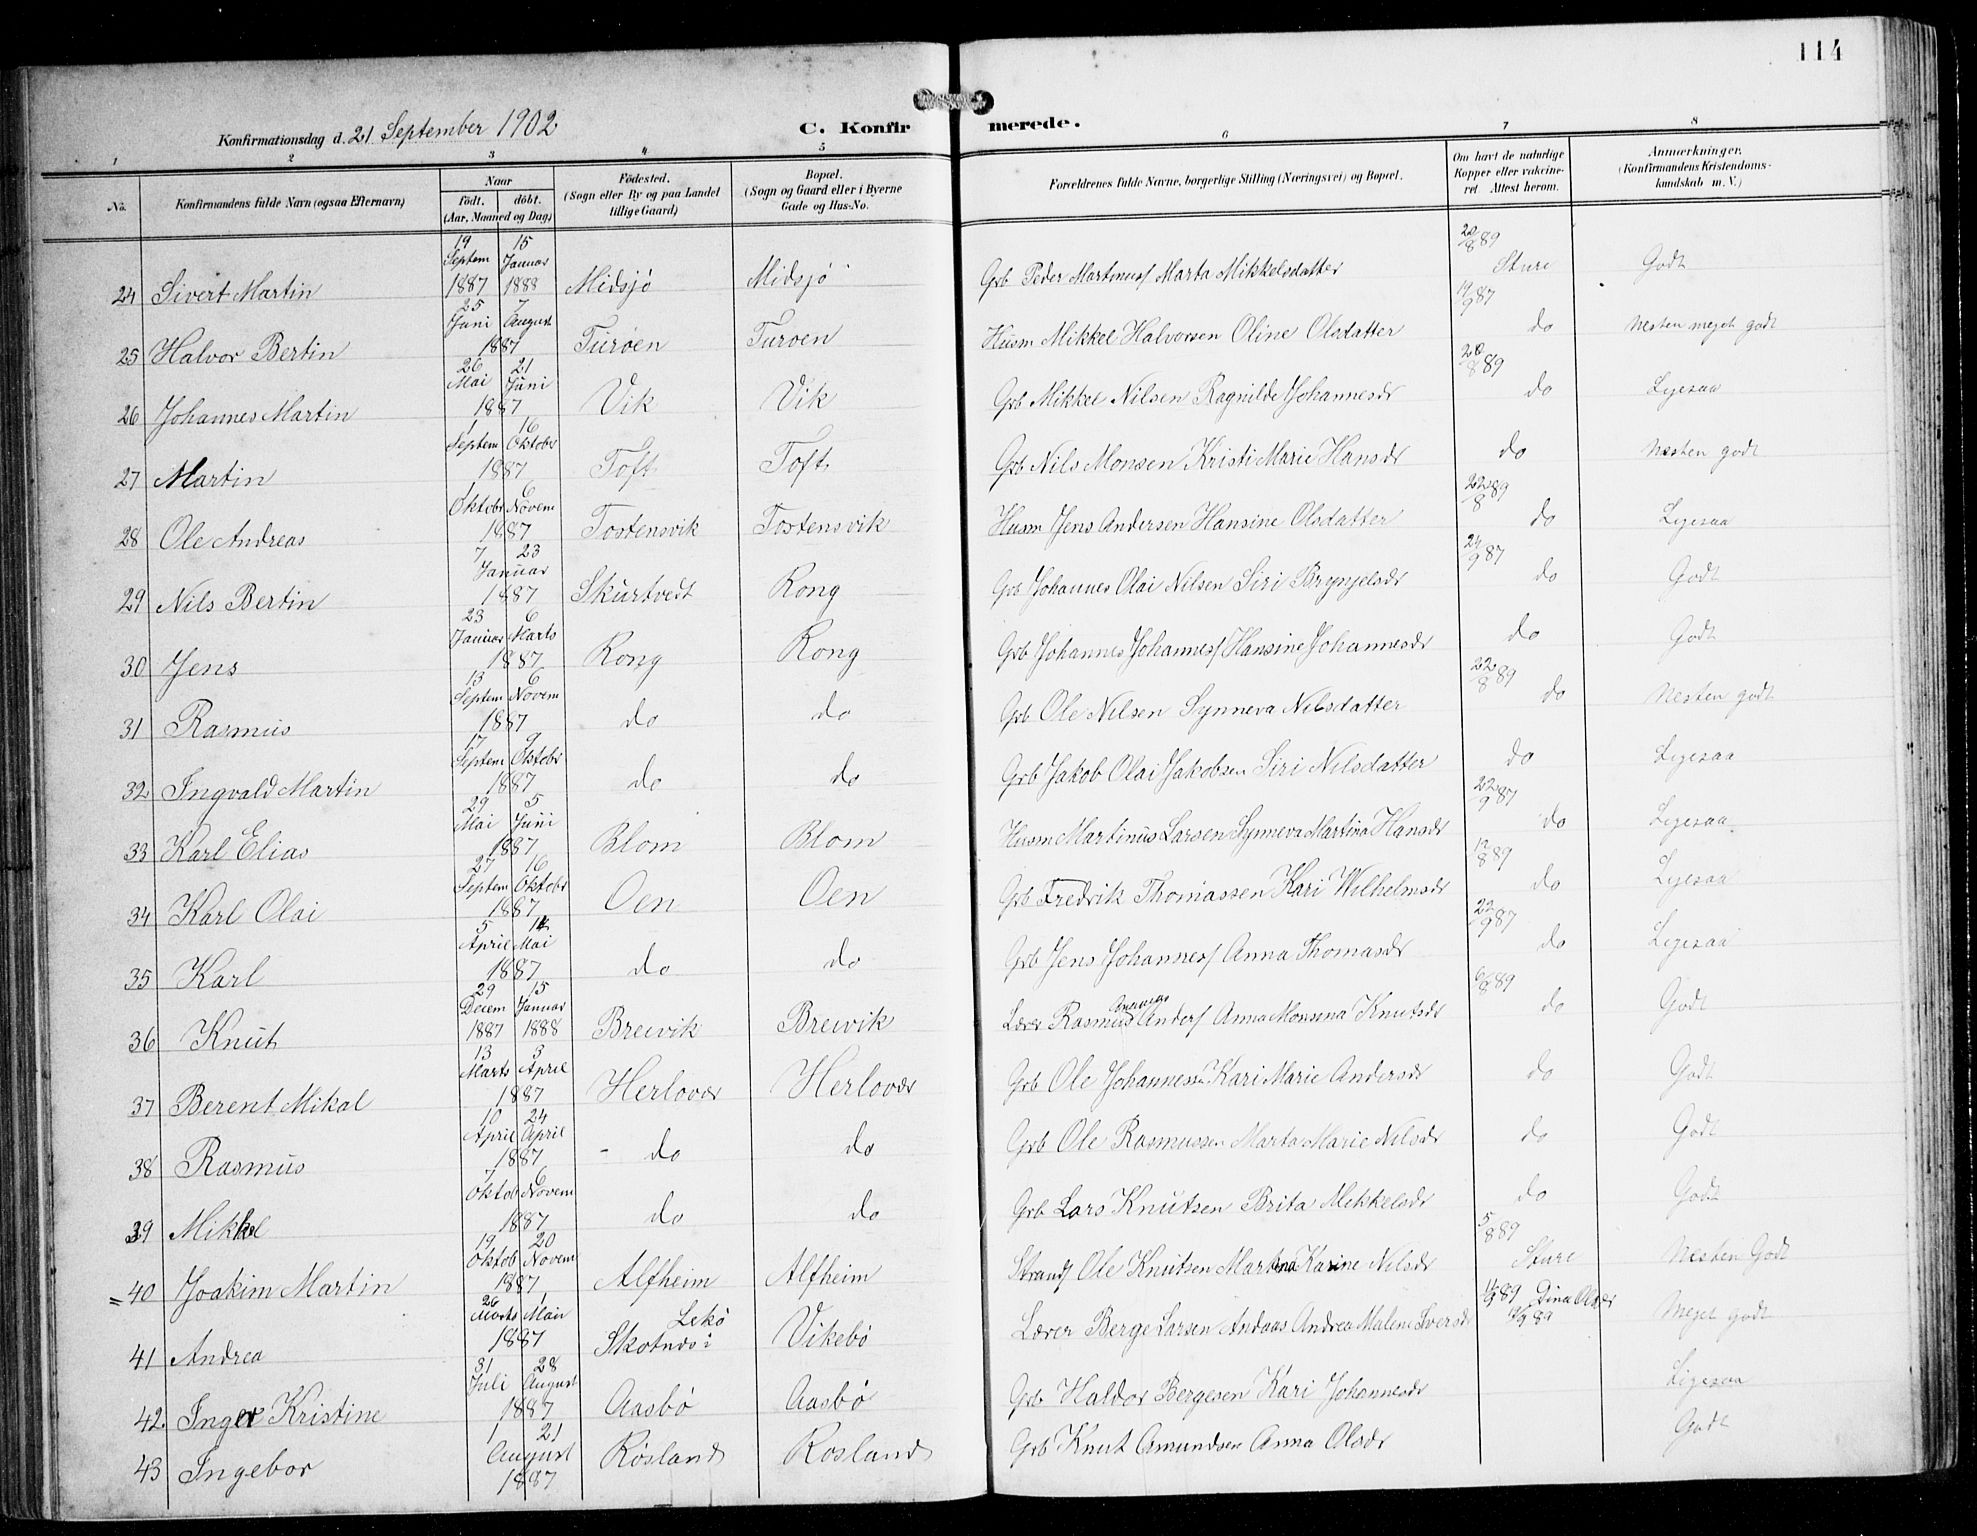 114
Konfirmationsdag d. 21 September 1902
C. Konfirmerede.
1 2 3 4 5 6 7 8
No.
Konfirmandens fulde Navn (ogsaa Efternavn)
Naar
födt. döbt.
(Aar, Maaned og Dag)
Födested.
(Sogn eller By og paa Landet
tillige Gaard)
Bopæl.
(Sogn og Gaard eller i Byerne
Gade og Hus-No.
Forældrenes fulde Navne, borgerlige Stilling (Næringsvei) og Bopæl.
Om havt de naturlige
Kopper eller vakcine-
ret Attest herom.
Anmærkninger.
(Konfirmandens Kristendoms-
kundskab m. V.)
24 Sivert Martin 19 Septem 1887 15 Januar 1888 Midsjö Midsjö Grb Peder Martinus/ Marta Mikkelsdatter 20/8 89 Sture Godt
25 Halvor Bertin 25 Juni 7 August 1887 Turöen Turoen Husm Mikkel Halvorsen Oline Olsdatter 19/9 87 do Nesten meget godt
26 Johannes Martin 26 Mai 21 Juni 1887 Vik Vik Grb Mikkel Nilsen Ragnilde Johannesdr 20/8 89 do Ligesaa
27 Martin 1 Septem 16 Oktobr 1887 Toft Toft Grb Nils Monsen Kristi Marie Hansdr do Nesten godt
28 Ole Andreas 1 Oktobr 6 Novem 1887 Tostensvik Tostensvik Husm Jens Andersen Hansine Olsdatter 22/8 89 do Ligesaa
29 Nils Bertin 7 23 Januar 1887 Skurtvedt Rong Grb Johannes Olai Nilsen Siri Brynjelsdr 24/9 87 do Godt
30 Jens 23 Januar 6 Marts 1887 Rong Rong Grb Johannes Johannes/ Hansine Johannesdr do Godt
31 Rasmus 13 Septem 6 Novem 1887 do do Grb Ole Nilsen Synneva Nilsdatter 22/8 89 do Nesten godt
32 Ingvald Martin 17 Septem 9 Oktobr 1887 do do Grb Jakob Olai Jakobsen Siri Nilsdatter do Ligesaa
33 Karl Elias 29 Mai 5 Juni 1887 Blom Blom Husm Martinus Larsen Synneva Martina Hansdr 22/9 87 do Ligesaa
34 Karl Olai 27 Septem 16 Oktobr 1887 Oen Oen Grb Fredrik Thomassen Kari Wilhelmsdr 12/8 89 do Ligesaa
35 Karl 5 April Mai 1887 do do Grb Jens Johannes/ Anna Thomasdr 22/9 87 do Ligesaa
36 Knut 29 Decem 1887 15 Januar 1888 Breivik Breivik Lærer Rasmus Anders/ Anna Monsena Knutsdr 6/8 89 do Godt
37 Berent Mikal 13 Marts 3 April 1887 Herlovær Herlovær Grb Ole Johannessen Kari Marie Andersdr do Godt
38 Rasmus 10 April 24 April 1887 do do Grb Ole Rasmussen Marta Marie Nilsdr do Godt
39 Mikkel 7 Oktob 6 Novem 1887 do do Grb Lars Knutsen Brita Mikkelsdr do Godt
40 Joakim Martin 19 Oktob 20 Novem 1887 Alfheim Alfheim Strands Ole Knutsen Martina Karine Nilsdr 5/8 89 Sture Nesten Godt
41 Andrea 26 Marts 1 Mai 1887 Skotnes i Lekö Vikebö Lærer Berge Larsen Andaas Andrea Malene Iversdr 89 Dina Olsdr 89 Meget godt
42 Inger Kristine 31 Juli 28 August 1887 Aasbö Aasbö Grb Haldor Bergesen Kari Johannesdr Ligesaa
43 Ingebor 1 21 August 1887 Rösland Rosland Grb Knut Amundsen Anna Olsdr Godt